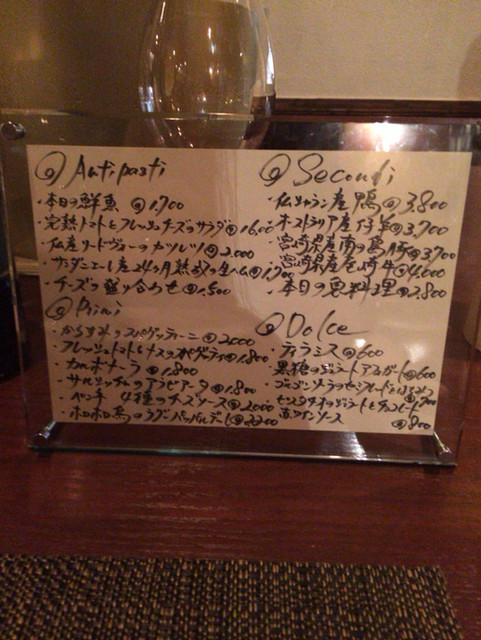 @ Antipasti
・本日の鮮魚 @1,700
・完熟トマトとフレッシュチーズのサラダ@1,600
・仏産リードヴォーのカツレツ @2,000
・サンダニエーレ産24ヶ月熟成の生ハム@1,700
・チーズの盛り合わせ@1,500
@ Primi
・からすみのスパゲッティーニ @2,000
・フレッシュトマトとナスのスパゲッティ@1,800
・カルボナーラ @1,800
・サルシッチャのアラビアータ@1,800
・ペンネ 4種のチーズソース@2,000
・ホロホロ鳥のラグー パッパルデッレ@2,200
@ Secondi
・仏シャラン産鴨@3,800
・オーストラリア産仔羊@3,700
・宮崎県産南の島豚@3,700
・宮崎県産宮崎牛@4,000
・本日の魚料理@2,800
@ Dolce
・ティラミス@600
・黒糖のジェラート アフォガート@600
・ゴルゴンゾーラのセミフレッドとはちみつ
@700
・ピスタチオのジェラートとチョコレート
赤ワインソース
@800